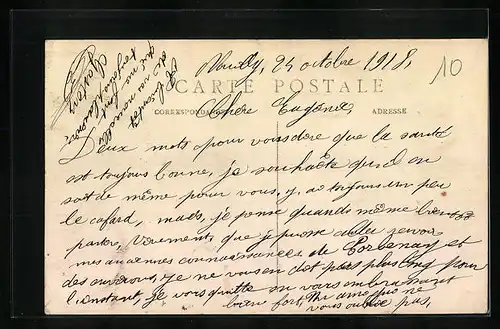 24 octobre 1918,
CARTE POSTALE
CORRESPONDANCE ADRESSE
Chère Eugénie,
Deux mots pour vous dire que la santé
est toujours bonne, je souhaite qu'il en
soit de même pour vous, y, a toujours un peu
le cafard, mais, je pense quand même bientôt
partir, Vivement que je puisse aller revoir
mes anciennes connaissances de et
des environs, je ne vous en dit pas plus long pour
l'instant, je vous quitte en vous embrassant
bien fort ami qui ne
vous oublie pas,
10